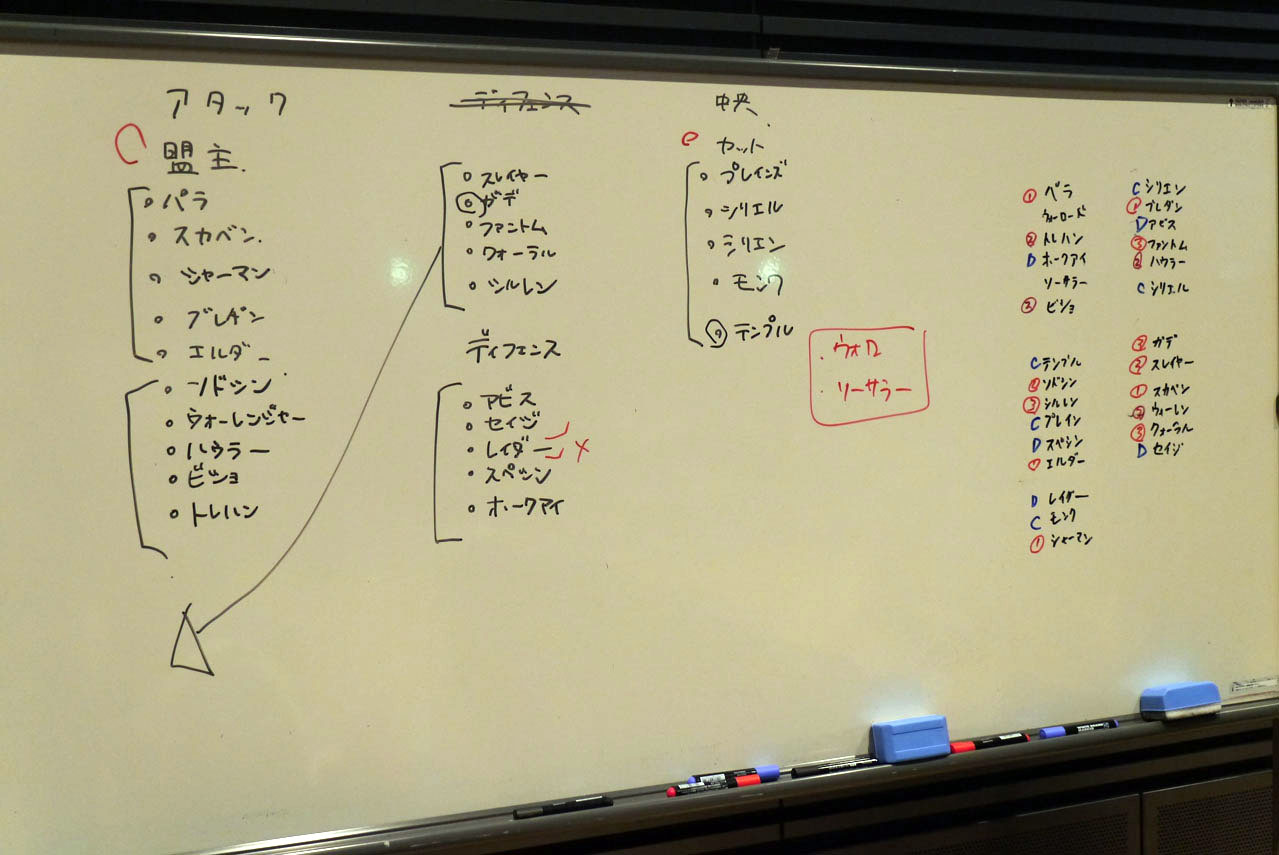 アタック
盟主.
パラ
スカベン.
シャーマン
ブレダン
エルダー
ソドシン
ウォーレンジャー
ハウラー
ビショ
トレハン
ディフェンス
スレイヤー
ガデ
ファントム
ウォーラル
シルレン
ディフェンス
アビス
セイジ
レイダー ×
スペシン
ホークアイ
中央.
カット
プレインズ
シリエル
シリエン
モンク
テンプル
ウォロ
ソーサラー
① パラ
ウォーロード
② トレハン
D ホークアイ
ソーサラー
② ビショ
C テンプル
② ソドシン
③ シルレン
C プレイン
D スペシン
① エルダー
D レイダー
C モンク
① シャーマン
C シリエン
① ブレダン
D アビス
③ ファントム
② ハウラー
C シリエル
③ ガデ
② スレイヤー
① スカベン
② ウォーレン
③ ウォーラル
D セイジ